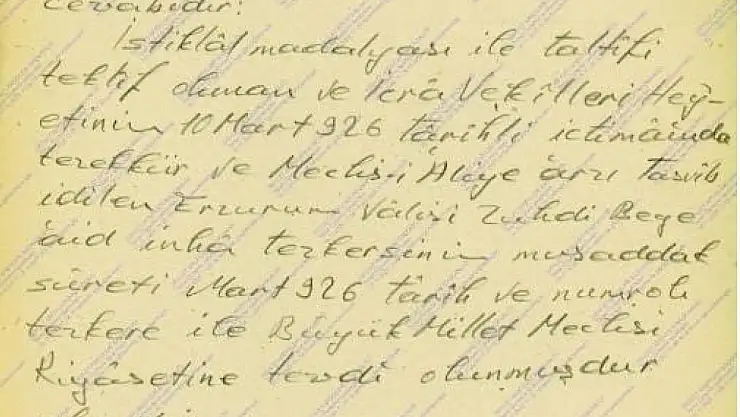 cevabıdır:
İstiklâl madalyası ile taltifi
teklif olunan ve İcrâ Vekilleri Hey-
etinin 10 Mart 926 târihli ictimâında
tezekkür ve Meclis-i Âliye arzı tasvib
idilen Erzurum Vâlisi Zühdi Beye
âid inhâ tezkersinin musaddak
sûreti Mart 926 târih ve numrolı
tezkere ile Büyük Millet Meclisi
Riyâsetine tevdi olunmuşdur